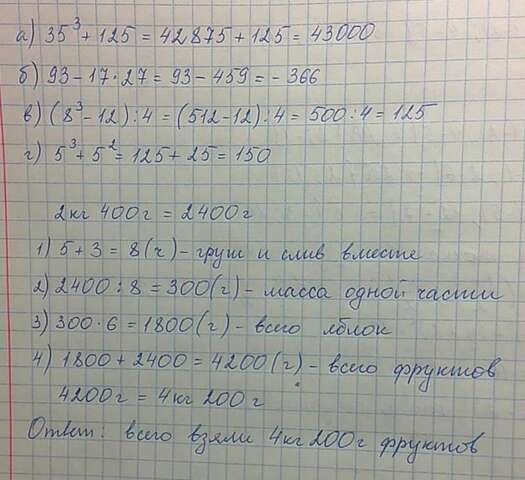 а) 35³ + 125 = 42875 + 125 = 43000
б) 93 - 17 · 27 = 93 - 459 = - 366
в) (8³ - 12) : 4 = (512 - 12) : 4 = 500 : 4 = 125
г) 5³ + 5² = 125 + 25 = 150
2кг 400г = 2400г
1) 5 + 3 = 8 (ч) - груш и слив вместе
2) 2400 : 8 = 300 (г) - масса одной части
3) 300 · 6 = 1800 (г) - всего яблок
4) 1800 + 2400 = 4200 (г) - всего фруктов
4200г = 4кг 200г
Ответ: всего взяли 4кг 200г фруктов